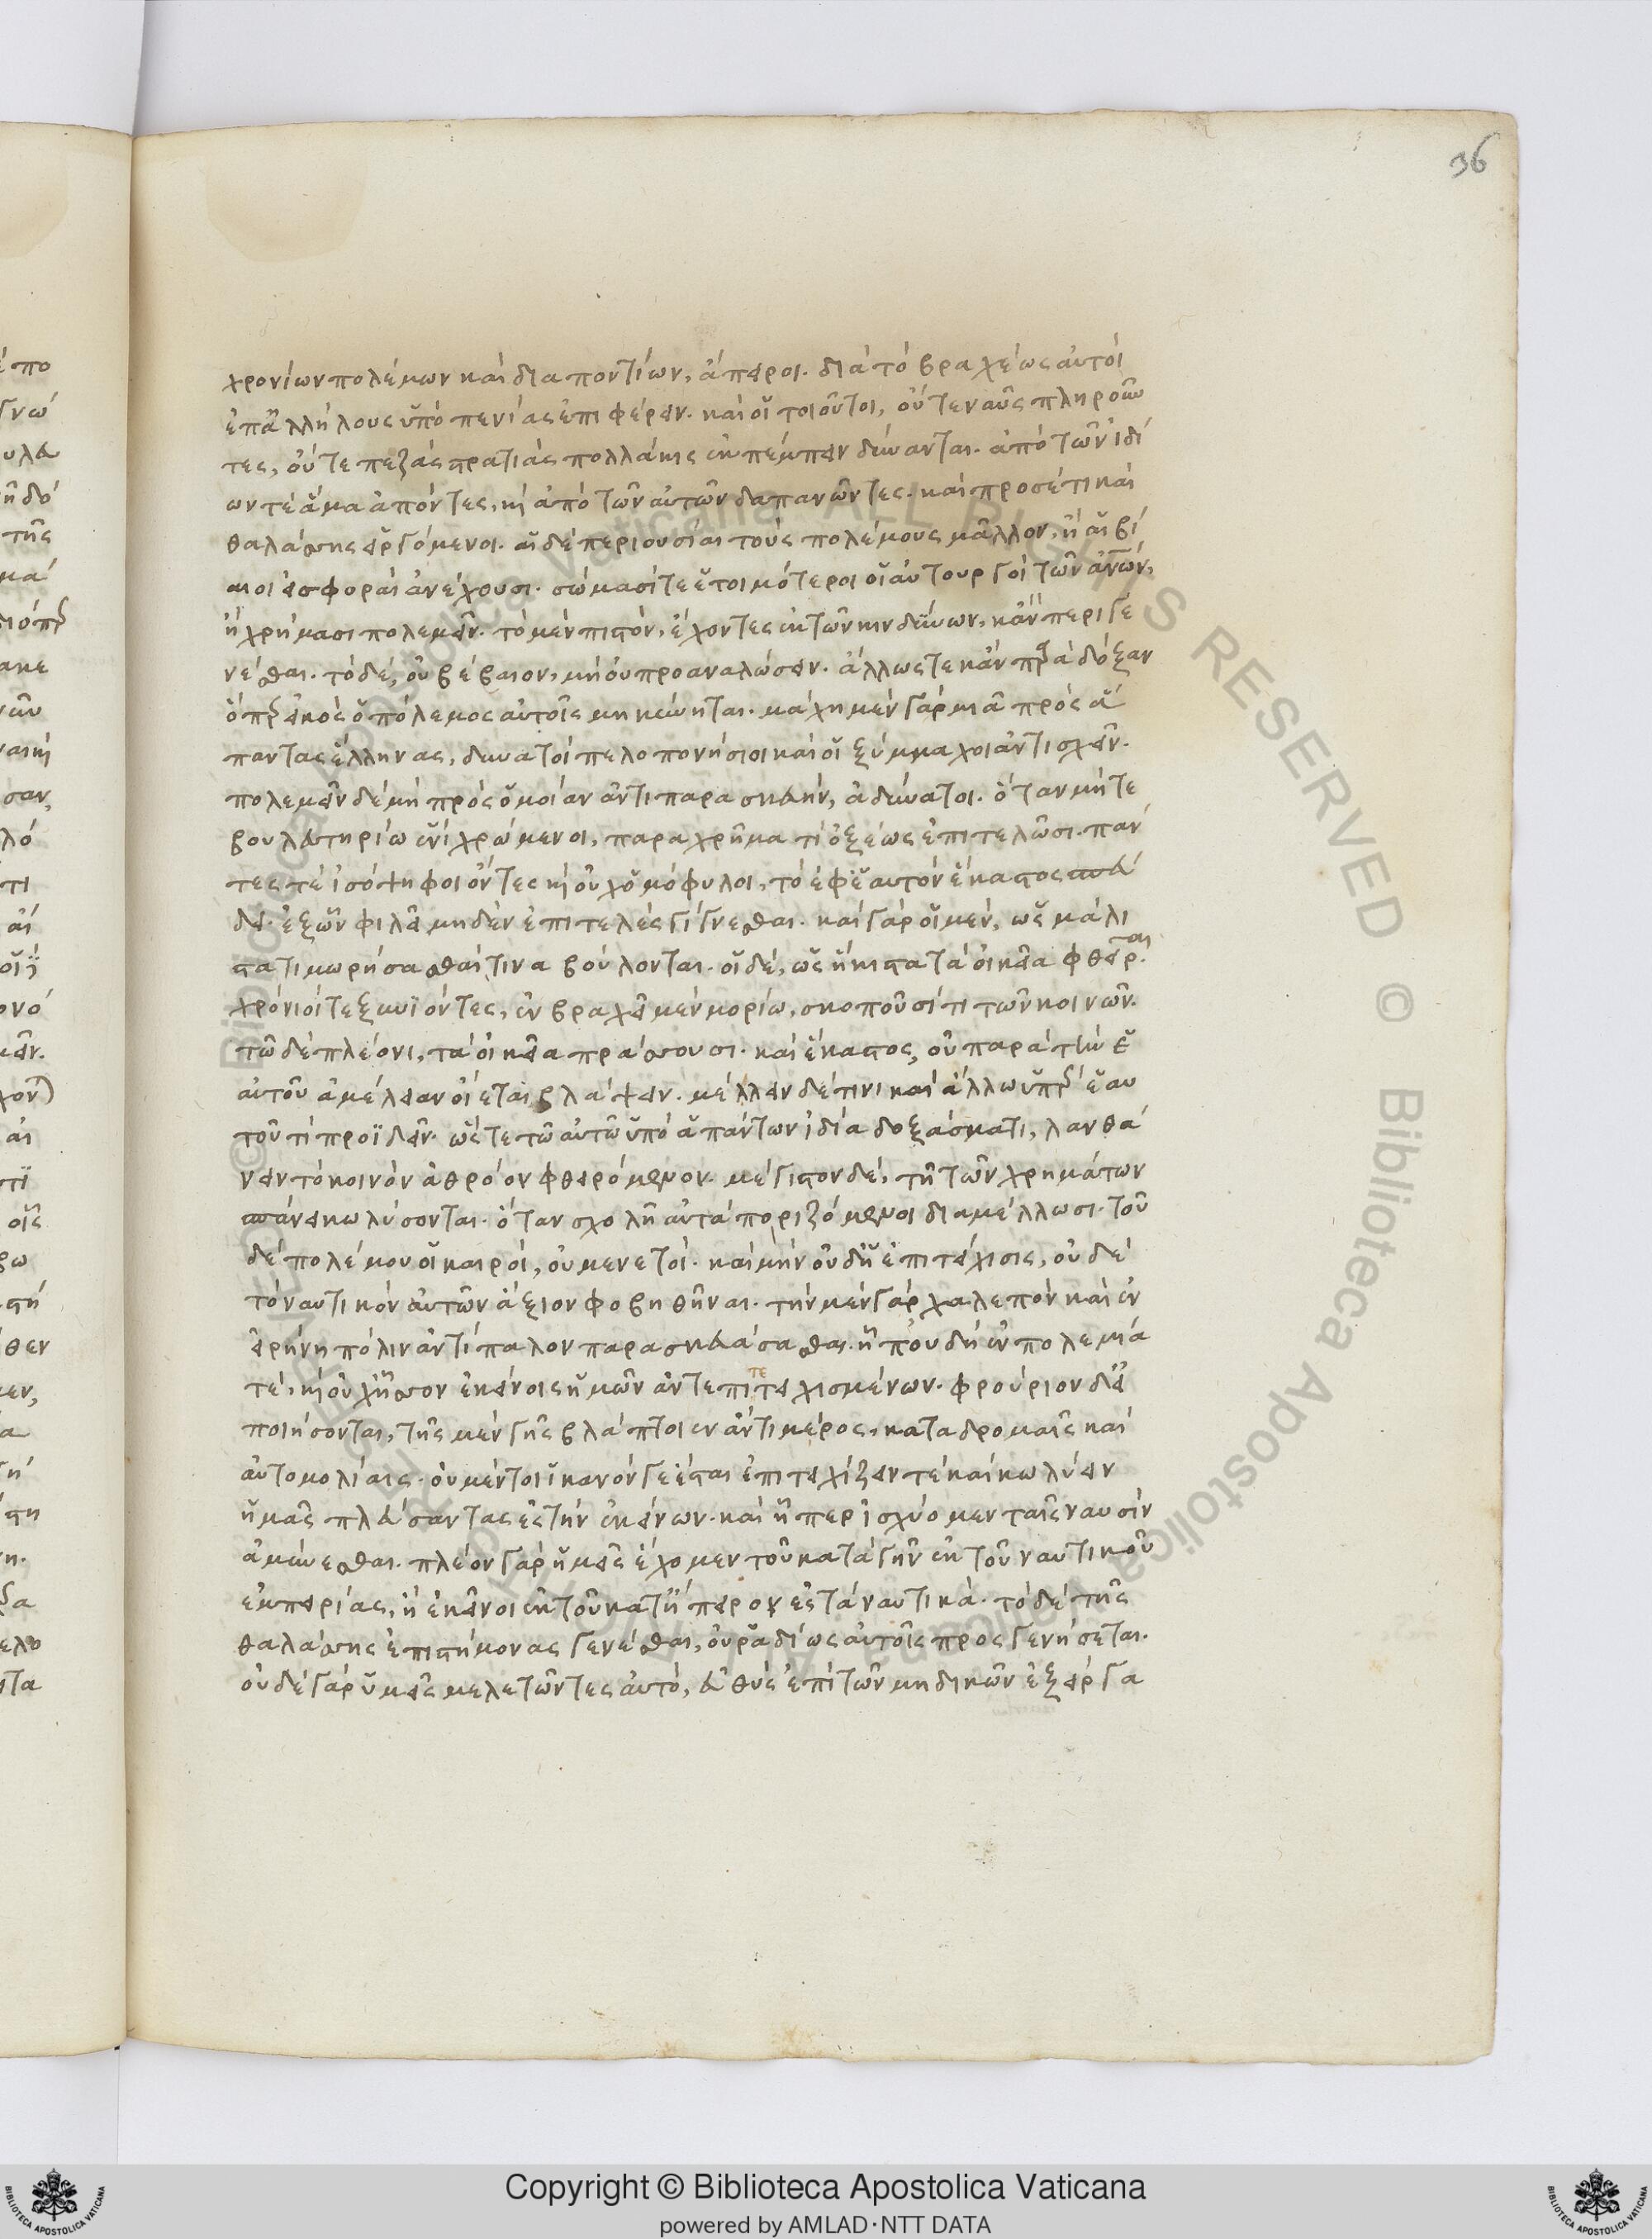 36
χρονίων πολέμων καὶ διαποντίων, ἄπειροι. διὰ τὸ βραχέως αὐτοὶ
ἐπἀλλήλους ὑπὸ πενίας ἐπιφέρειν. καὶ οἱ τοιοῦτοι, οὔτε ναῦς πληροῦν
τες, οὔτε πεζὰς στρατιὰς πολλάκις ἐκπέμπειν δύνανται. ἀπὸ τῶν ἰδί
ων τὲ ἅμα ἀπόντες, κὶ ἀπὸ τῶν αὐτῶν δαπανῶντες. καὶ προσέτι καὶ
θαλάσσης εἰργόμενοι. αἱ δὲ περιουσίαι τοὺς πολέμους μᾶλλον, ἢ αἱ βί
αιοι ἐσφοραὶ ἀνέχουσι. σώμασί τε ἑτοιμότεροι οἱ αὐτουργοὶ τῶν ἀνῶν,
ἢ χρήμασι πολεμεῖν. τὸ μὲν πιστὸν, ἔχοντες ἐκ τῶν κινδύνων, κἂν περιγε
νέσθαι. τὸ δὲ, οὐ βέβαιον, μὴ οὐ προαναλώσειν. ἄλλως τε κἂν παρὰ δόξαν
ὅπερ εἰκὸς ὁ πόλεμος αὐτοῖς μηκύνηται. μάχη μὲν γὰρ μιᾶ πρὸς ἅ
παντας ἕλληνας, δυνατοὶ πελοπονήσιοι καὶ οἱ ξύμμαχοι ἀντισχεῖν.
πολεμεῖν δὲ μὴ πρὸς ὁμοίαν ἀντιπαρασκευὴν, ἀδύνατοι. ὅταν μήτε
βουλευτηρίω ἑνὶ χρώμενοι, παραχρῆμα τὶ ὀξέως ἐπιτελῶσι. πάν
τες τὲ ἰσόψηφοι ὄντες κὶ οὐχ ὁμόφυλοι, τὸ ἐφἑαυτὸν ἕκαστος σπεύ
δει. ἐξ ὧν φιλεῖ μηδὲν ἐπιτελὲς γίγνεσθαι. καὶ γὰρ οἱ μὲν, ὡς μάλι
στα τιμωρήσασθαί τινα βούλονται. οἱ δὲ, ὡς ἥκιστα τὰ οἰκεῖα φθεῖραι.
χρόνιοί τε ξυνϊόντες, ἐν βραχεῖ μὲν μορίω, σκοποῦσί τι τῶν κοινῶν.
τῶ δὲ πλέονι, τὰ οἰκεῖα πράσσουσι. καὶ ἕκαστος, οὐ παρὰ τὴν ἑ
αυτοῦ ἀμέλειαν οἴεται βλάψειν. μέλλειν δέ τινι καὶ ἄλλω ὑπὲρ ἑαυ
τοῦ τὶ προϊδεῖν. ὥστε τῶ αὐτῶ ὑπὸ ἁπάντων ἰδία δοξάσματι, λανθά
νειν τὸ κοινὸν ἀθρόον φθειρόμενον. μέγιστον δὲ, τῆ τῶν χρημάτων
σπάνει κωλύσονται. ὅταν σχολῆ αὐτὰ ποριζόμενοι διαμέλλωσι. τοῦ
δὲ πολέμου οἱ καιροὶ, οὐ μενετοί. καὶ μὴν οὐδἡ ἐπιτείχισις, οὐδὲ
τὸ ναυτικὸν αὐτῶν ἄξιον φοβηθῆναι. τὴν μὲν γὰρ χαλεπὸν καὶ ἐν
εἰρήνη πόλιν ἀντίπαλον παρασκευάσασθαι. ἦ που δὴ ἐν πολεμία
τὲ, κὶ οὐχ ἧσσον ἐκείνοις ἡμῶν ἀντεπιτετειχισμένων. φρούριον δεἰ
ποιήσονται, τῆς μὲν γῆς βλάπτοιεν ἄν τι μέρος, καταδρομαῖς καὶ
αὐτομολίαις. οὐ μέντοι ἱκανόν γε ἔσται ἐπιτειχίζειν τὲ καὶ κωλύειν
ἡμᾶς πλεύσαντας ἐς τὴν ἐκείνων. καὶ ἧπερ ἰσχύομεν ταῖς ναυσὶν
ἀμύνεσθαι. πλέον γὰρ ἡμεῖς ἔχομεν τοῦ κατὰ γῆν ἐκ τοῦ ναυτικοῦ
ἐμπειρίας, ἢ ἐκεῖνοι ἐκ τοῦ κατἤπειρον ἐς τὰ ναυτικά. τὸ δὲ τῆς
θαλάσσης ἐπιστήμονας γενέσθαι, οὐ ῥαδίως αὐτοῖς προσγενήσεται.
οὐδὲ γὰρ ὑμεῖς μελετῶντες αὐτὸ, εὐθὺς ἐπὶ τῶν μηδικῶν ἐξείργα
Copyright © Biblioteca Apostolica Vaticana
powered by AMLAD·NTT DATA